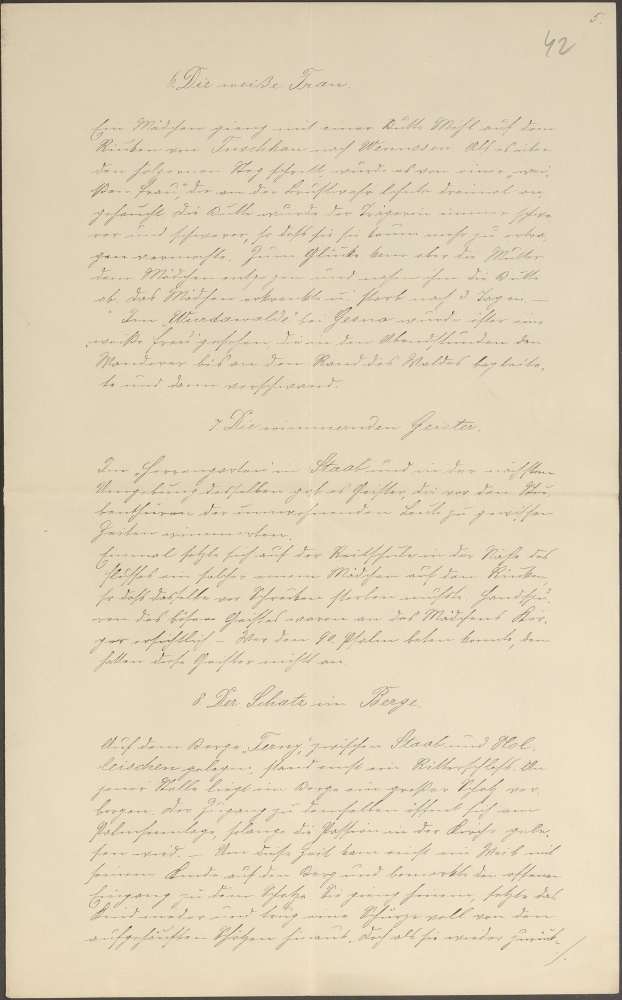 5.
42
6. Die weiße Frau.
Ein Mädchen gieng mit einer Butte Mehl auf dem
Rücken von Tuschkau nach Wenussen. Als es über
den hölzernen Steg schritt, wurde es von einer „wei-
ßen Frau“, die an der Brustwehr lehnte dreimal an-
gehaucht. Die Butte wurde der Trägerin immer schwe-
rer und schwerer, so daß sie sie kaum mehr zu ertra-
gen vermochte. Zum Glücke kam aber die Mutter
dem Mädchen entgegen und nahm ihm die Butte
ab. Das Mädchen erkrankte u. starb nach 3 Tagen. —
Im „Wurdawalde“ bei Gesna wurde öfter eine
„weiße Frau“ gesehen, die in den Abendstunden den
Wanderer bis an den Rand des Waldes begleite-
te und dann verschwand.
7. Die wimmernden Geister.
Im „Herrengarten“ in Staab und in der nächsten
Umgebung desselben gab es Geister, die vor den
der umwohnenden Leute zu gewissen
Zeiten wimmerten.
Einmal setzte sich auf der Reitschule in der Nähe des
Schlosses ein solcher einem Mädchen auf den Rücken,
so daß dasselbe vor Schrecken sterben mußte. Handspu-
ren des bösen Geistes waren an des Mädchens Kör-
per ersichtlich. — Wer den 90. Psalm beten konnte, dem
hatten diese Geister nichts an.
8. Der Schatz im Berge.
Auf dem Berge „Ferny“, zwischen Staab und Hol-
leischen gelegen, stand einst ein Ritterschloß. An
jener Stelle liegt im Berge ein großer Schatz ver-
borgen. Der Zugang zu demselben öffnet sich am
Palmsonntage, solange die Passion in der Kirche gele-
sen wird. — Um diese Zeit kam einst ein Weib mit
seinem Kinde auf den Berg und bemerkte den offenen
Eingang zu dem Schatze. Sie gieng hinein, setzte das
Kind nieder und trug eine Schürze voll von den
aufgehäuften Schätzen hinaus. Doch als sie wieder zurück-